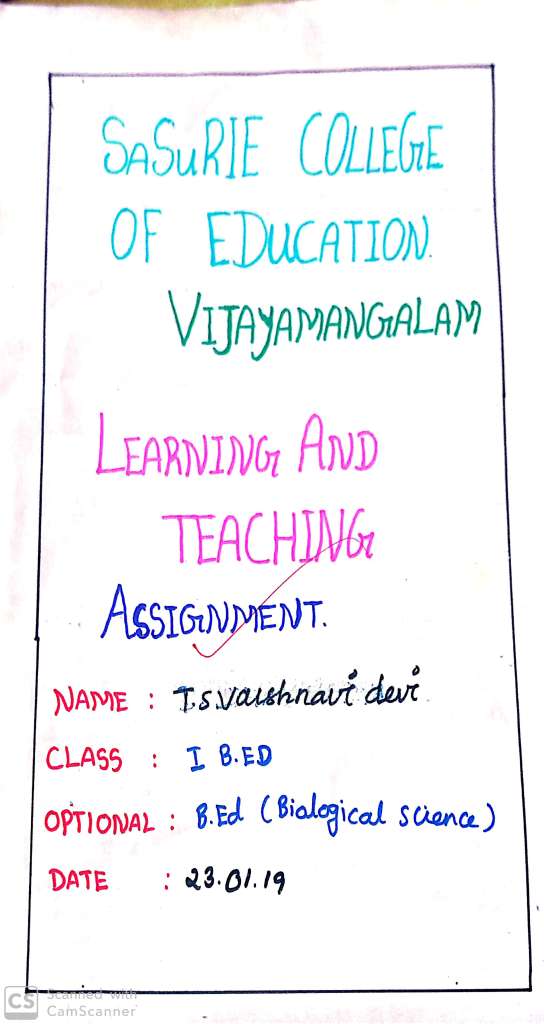 SASURIE COLLEGE
OF EDUCATION.
VIJAYAMANGALAM
LEARNING AND
TEACHING
ASSIGNMENT.
NAME : T.S.Vaishnavi devi
CLASS : I B.ED
OPTIONAL : B.Ed (Biological science)
DATE : 23.01.19
CS Scanned with
CamScanner